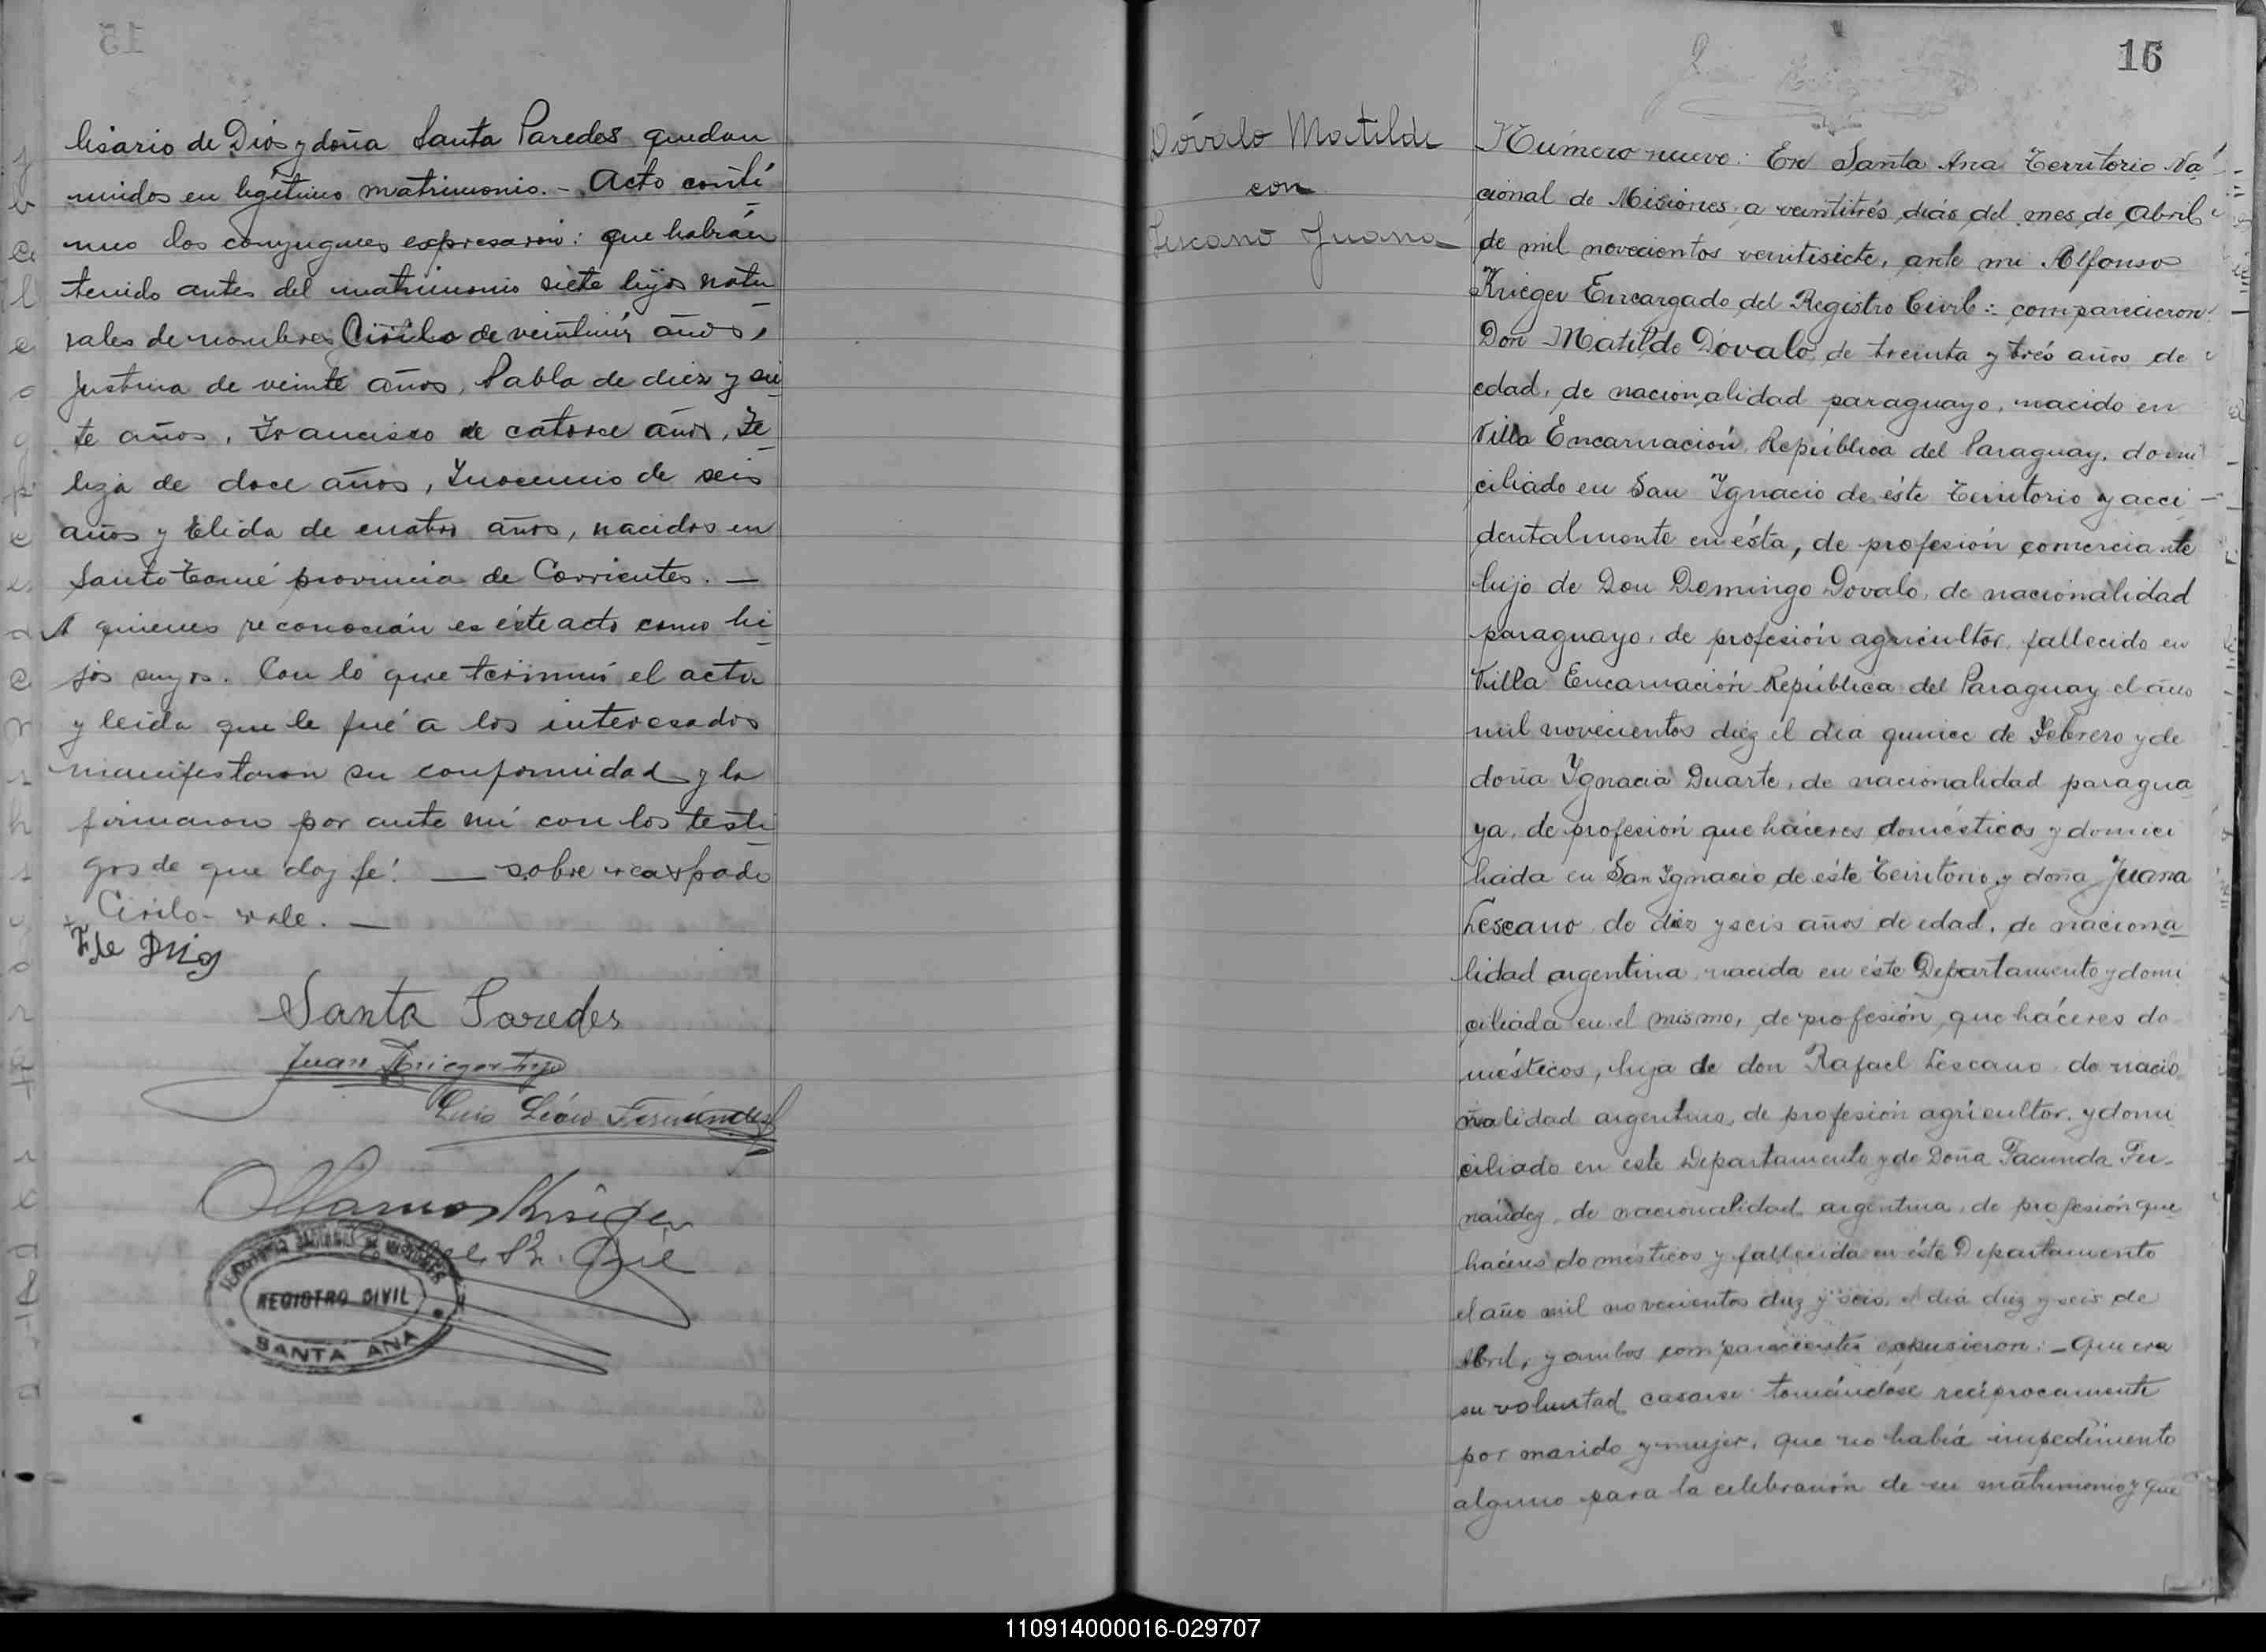 lisario de Dios y doña Santa Paredes quedan
unidos en legítimo matrimonio. - Acto contí
nuo los conyugues expresaron: que habían
tenido antes del matrimonio siete hijos natu
rales de nombres Cirilo de veintiún años,
Justina de veinte años, Pabla de diez y sie
te años, Francisco de catorce años, Fe
liza de doce años, Inocencio de seis
años y Elida de cuatro años, nacidos en
Santo Tomé provincia de Corrientes. —
A quienes reconocían en éste acto como hi
jos suyos. Con lo que terminó el acta
y leida que le fué a los interesados
manifestaron su conformidad y la
firmaron por ante mí con los testi
gos de que doy fé! — sobre raspado
Cirilo - vale. —
F de Dios
Santa Paredes
Juan Krieger hijo
Luis León Fernández
Alfonso Krieger
REGISTRO CIVIL
SANTA ANA
16
Dóvalo Matilde
con
Lescano Juana
Número nueve: En Santa Ana Territorio Na
cional de Misiones, a veintitrés días del mes de Abril
de mil novecientos veintisiete, ante mi Alfonso
Krieger Encargado del Registro Civil: comparecieron
Don Matilde Dóvalo, de treinta y trés años de
edad, de nacionalidad paraguayo, nacido en
Villa Encarnación, República del Paraguay, domi
ciliado en San Ignacio de éste Territorio y acci
dentalmente en ésta, de profesión comerciante
hijo de Don Domingo Dovalo, de nacionalidad
paraguayo, de profesión agricultor, fallecido en
Villa Encarnación República del Paraguay el año
mil novecientos diez el día quince de Febrero y de
doña Ignacia Duarte, de nacionalidad paragua
ya, de profesión que háceres domésticos y domici
liada en San Ignacio de éste Territorio y doña Juana
Lescano de diez y seis años de edad, de naciona
lidad argentina nacida en éste Departamento y domi
ciliada en el mismo, de profesión que háceres do
mésticos, hija de don Rafael Lescano de nacio
nalidad argentino, de profesión agricultor, y domi
ciliado en este Departamento y de Doña Facunda Fer-
nández, de nacionalidad argentina, de profesión que
háceres domésticos y fallecida en éste Departamento
el año mil novecientos diez y seis, el día diez y seis de
Abril, y ambos comparecientes expusieron: - Que era
su voluntad casarse tomándose recíprocamente
por marido y mujer, que no había impedimento
alguno para la celebración de su matrimonio y que
110914000016-029707